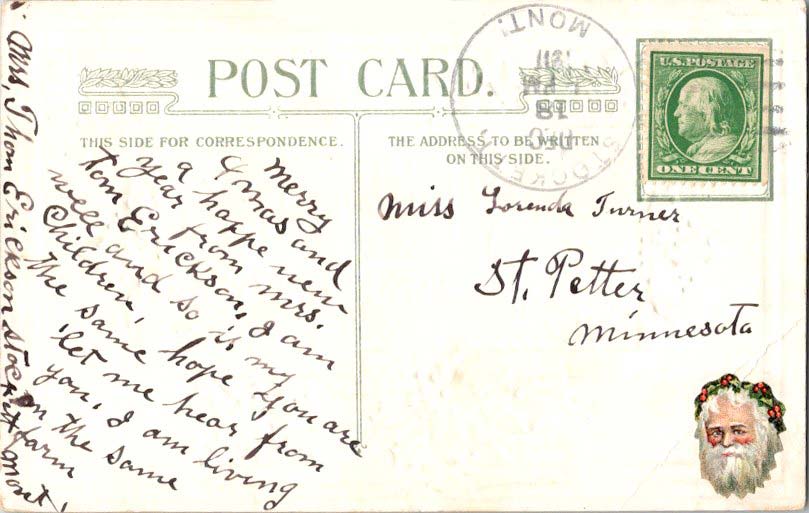 POST CARD.
THIS SIDE FOR CORRESPONDENCE.
THE ADDRESS TO BE WRITTEN
ON THIS SIDE.
MONT.
1911
PM
18
DEC
U.S. POSTAGE
ONE CENT
Merry
Xmas and
a happe new
year from mrs.
Tom Erickson, I am
well and so is my
Children,
the same hope you are
let me hear from
you, I am living
on the same
farm
Mrs, Thom Erickson Stockett mont,
Miss Lorenda Turner
St. Petter
Minnesota